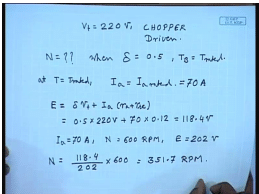 V_t = 220 V, CHOPPER
Driven.
N = ?? when δ = 0.5, T_B = T_rated.
at T = T_rated, I_a = I_a rated. = 70A
E = δ V_t + I_a (r_a+r_se)
= 0.5 × 220V + 70 × 0.12 = 118.4V
I_a = 70A, N = 600 RPM, E = 202 V
N = 118.4 / 202 × 600 = 351.7 RPM.